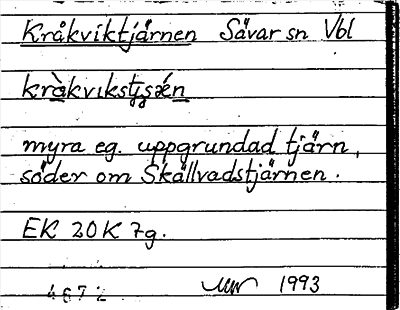 Kråkviktjärnen Sävar sn Vbl
kråkvikstjsǽn
myra eg. uppgrundad tjärn,
söder om Skällvadstjärnen.
EK 20K 7g.
1993
4672